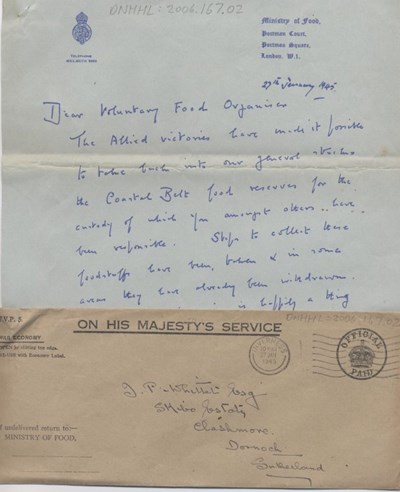 DNHHL: 2006.167.02
Ministry of Food,
Portman Court,
Portman Square,
London, W.1.
TELEPHONE
27th January 1945.
Dear Voluntary Food Organiser
The Allied victories have made it possible
to take back into our general stocks
the Coastal Belt food reserves for the
custody of which you amongst others have
been responsible. Steps to collect these
foodstuffs have been taken & in some
areas they have already been withdrawn.
is happily a thing
V.P. 2.
ECONOMY
ON HIS MAJESTY'S SERVICE
DNHHL: 2006.167.02
OFFICIAL
PAID
1945
If undelivered return to:-
MINISTRY OF FOOD,
J. P. Whittet Esq
Skibo Estate
Clashmore.
Dornoch
Sutherland